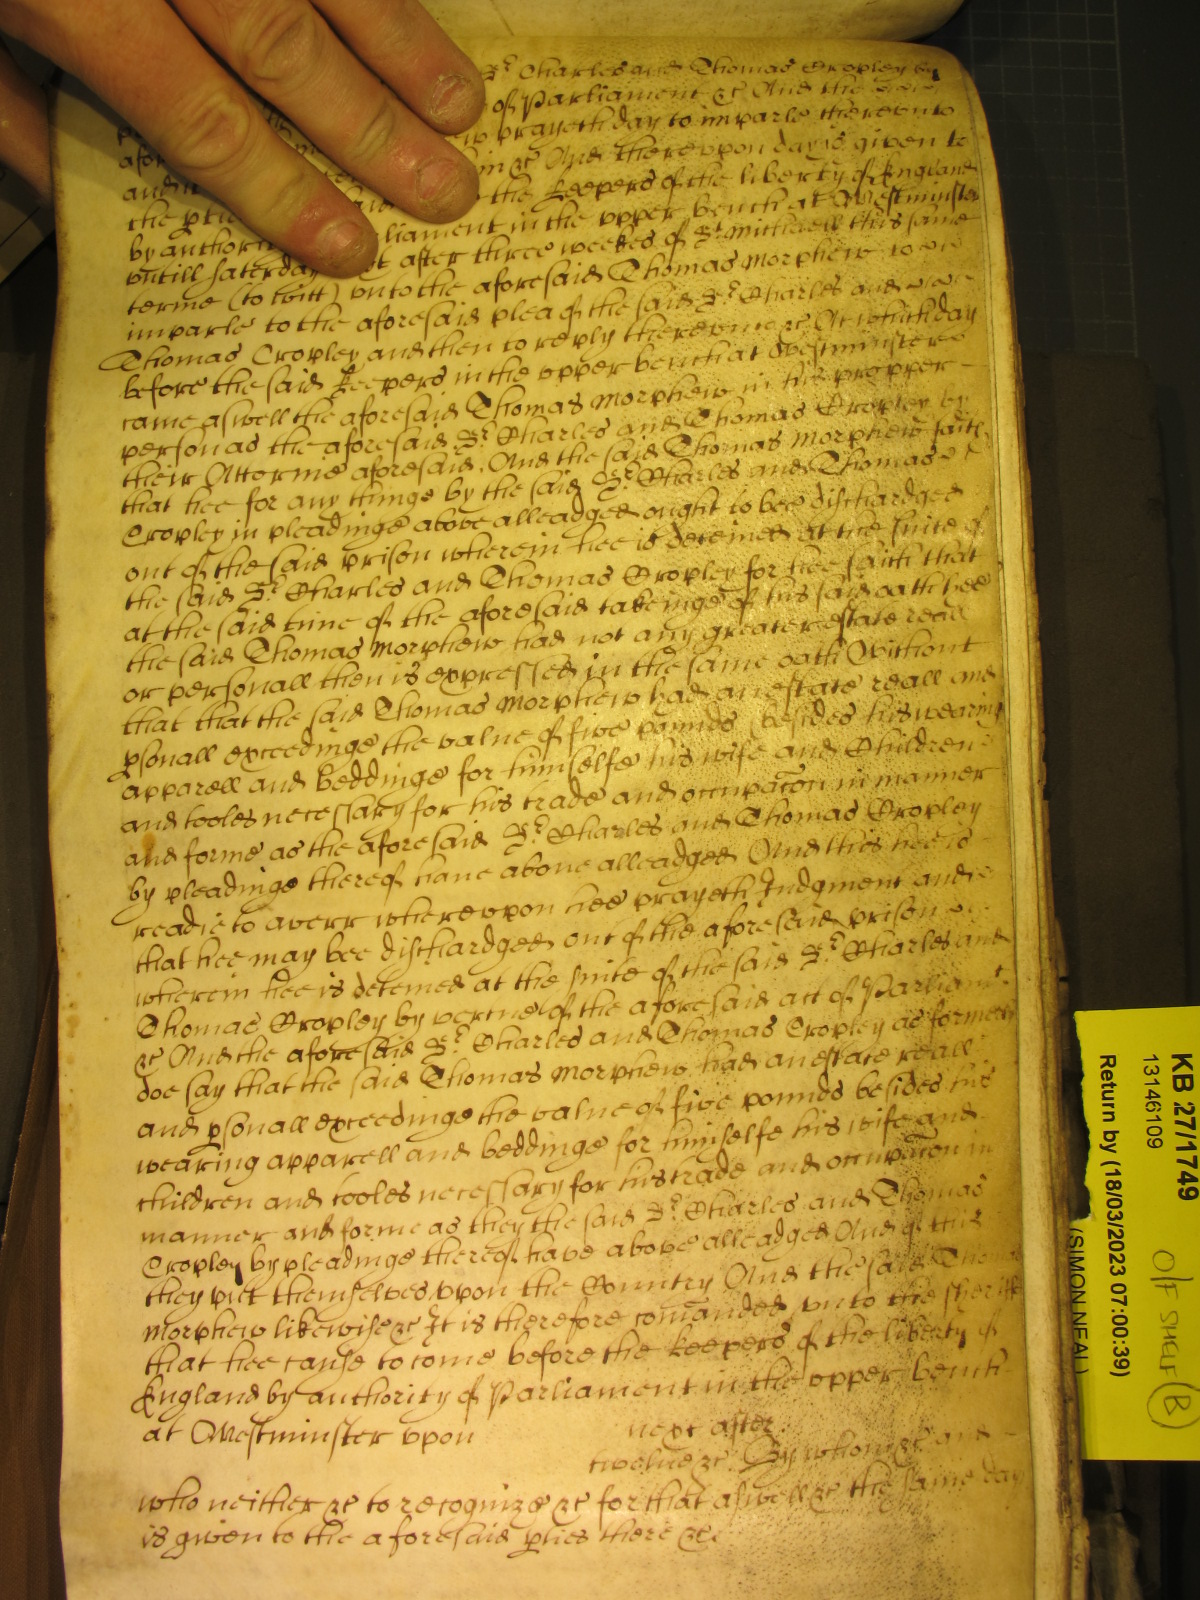 Sr. Charles and Thomas Cropley by
of Parliament &c And the
prayeth day to imparle thereunto
in &c And thereupon day is given to
the Keepers of the liberty of England
by authori liament in the upper bench at Westminster
untill Saterday after three weekes of St. Michaell this same
terme (to witt) unto the aforesaid Thomas Morphew to
imparle to the aforesaid plea of the said Sr. Charles and
Thomas Cropley and then to reply thereunto &c At which day
before the said Keepers in the upper bench at Westminster
came aswell the aforesaid Thomas Morphew in his propper
person as the aforesaid Sr. Charles and Thomas Cropley by
their Attornie aforesaid. And the said Thomas Morphew saith
that hee for any thinge by the said Sr. Charles and Thomas
Cropley in pleadinge above alleadged ought to bee dischardged
out of the said prison wherein hee is deteined at the suite of
the said Sr. Charles and Thomas Cropley for hee saith that
at the said time of the aforesaid takeinge of his said oath hee
the said Thomas Morphew had not any greater estate reall
or personall then is expressed in the same oath Without
that that the said Thomas Morphew had an estate reall and
psonall exceedinge the value of five pounds besides his wearing
apparell and beddinge for himselfe his wife and Children
and tooles necessary for his trade and occupacon in manner
and forme as the aforesaid Sr. Charles and Thomas Cropley
by pleadinge thereof have above alleadged And this hee is
readie to averr whereupon hee prayeth Judgment and
that hee may bee dischardged out of the aforesaid prison
wherein hee is deteined at the suite of the said Sr. Charles and
Thomas Cropley by vertue of the aforesaid act of Parliamt.
&c And the aforesaid Sr. Charles and Thomas Cropley as formerly
doe say that the said Thomas Morphew had an estate reall
and psonall exceedinge the value of five pounds besides his
wearing apparell and beddinge for himselfe his wife and
children and tooles necessary for his trade and occupacon in
manner and forme as they the said Sr. Charles and Thomas
Cropley by pleadinge thereof have above alleadged And of this
they put themselves upon the Country And the said Thomas
Morphew likewise &c It is therefore comanded unto the Sheriffe
that hee cause to come before the Keepers of the liberty of
England by authority of Parliament in the upper bench
at Westminster upon next after
twelve &c By whom &c and
who neither &c to recognize &c for that aswell &c the same day
is given to the aforesaid pties there &c.
KB 27/1749
13146109
Return by (18/03/2023 07:00:39)
(SIMON NEAL)
Off Shelf (B)